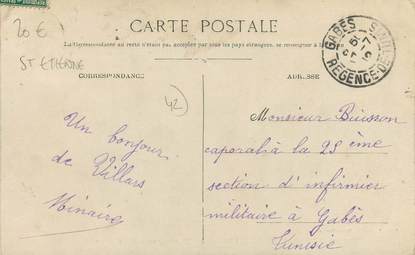 20 €
ST ETIENNE
42
CARTE POSTALE
La Correspondance au recto n'est pas acceptée par tous les pays étrangers, se renseigner à la
CORRESPONDANCE
ADRESSE
GABÈS
RÉGENCE DE
Un bonjour
de Villars
Minaire
Monsieur Buisson
caporal à la 25ème
section d'infirmier
militaire à Gabès
Tunisie